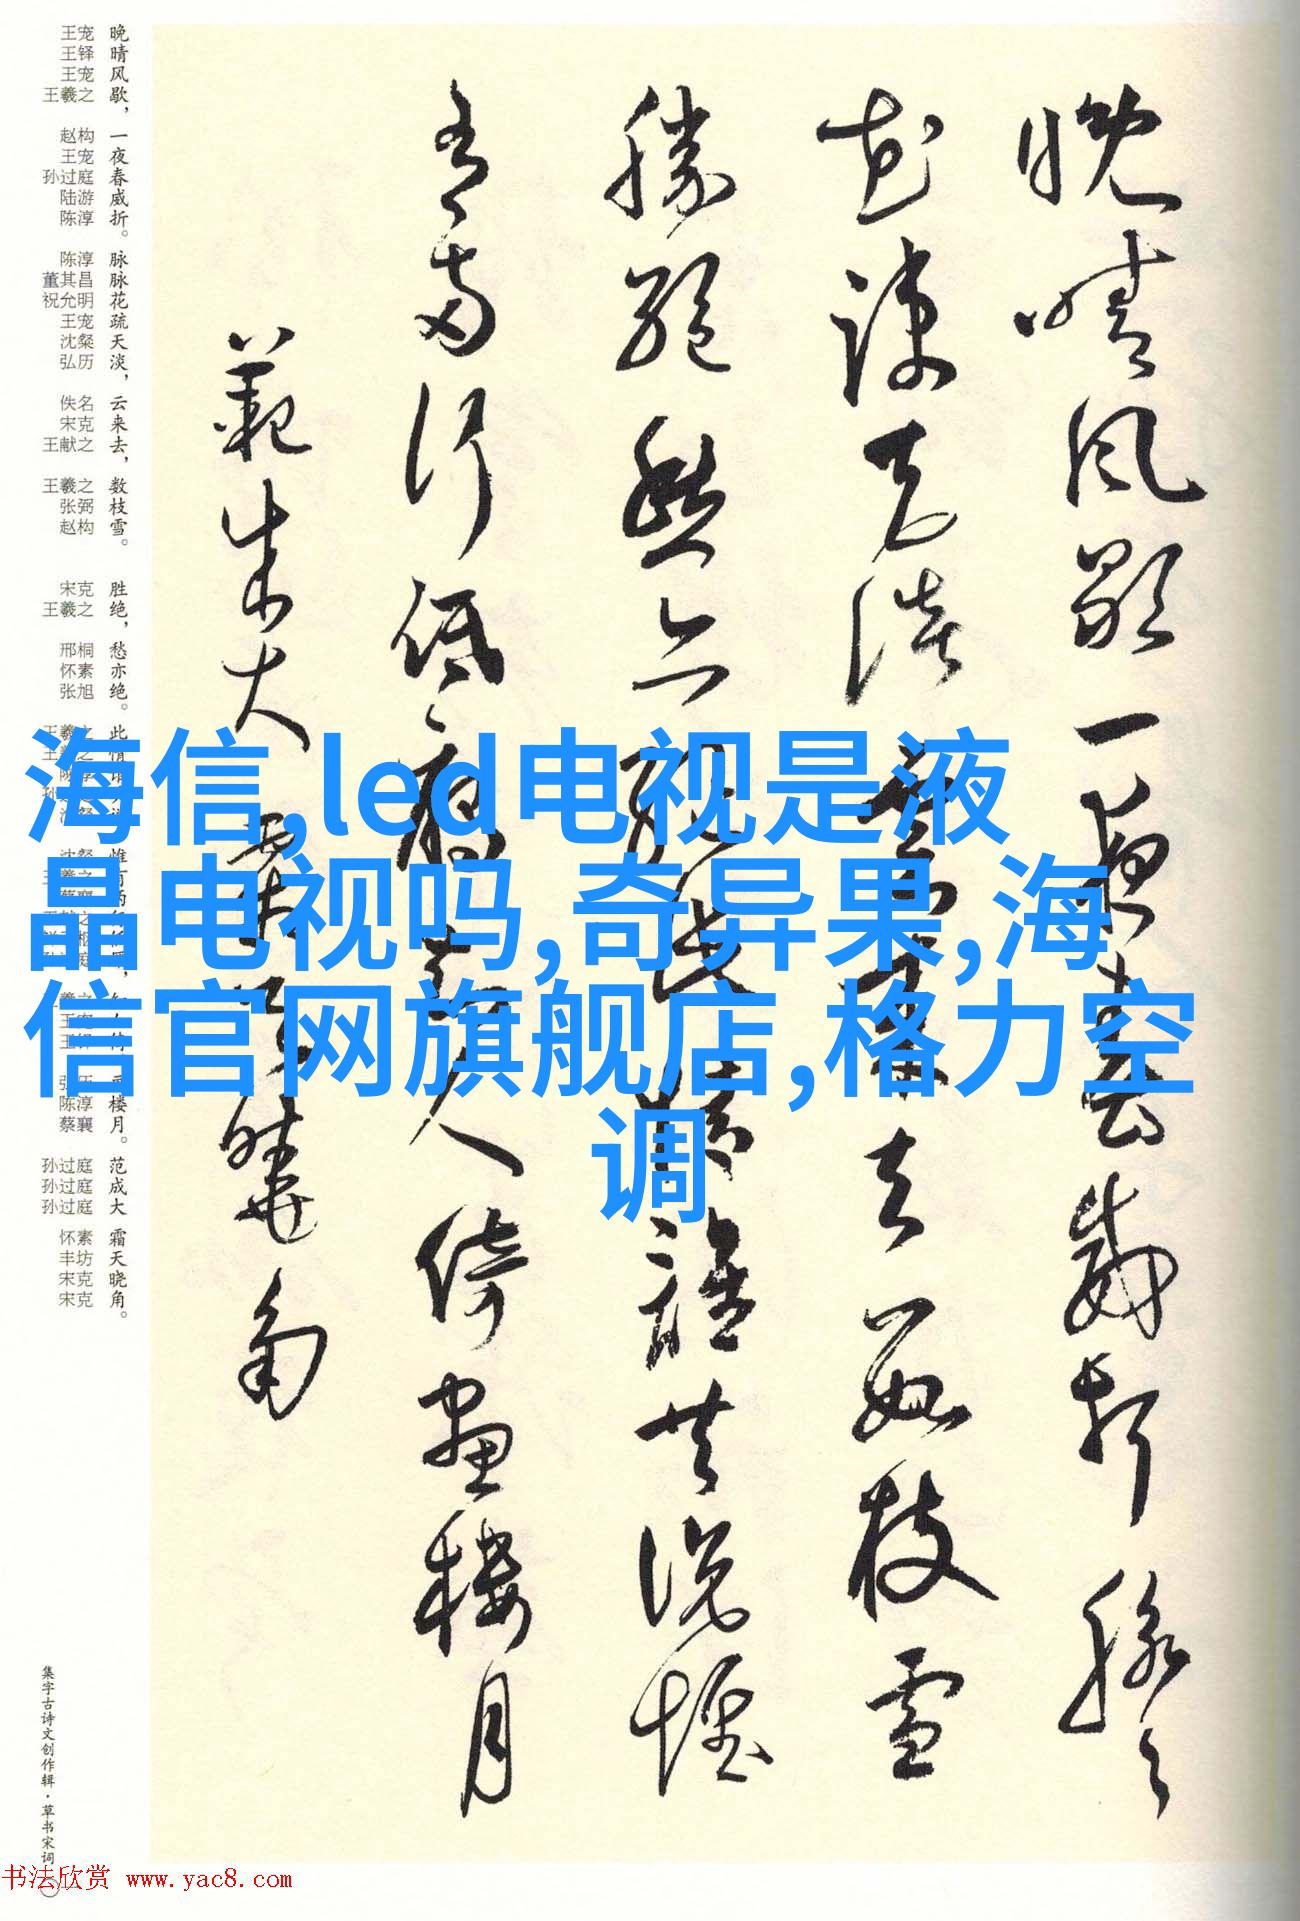 晚晴風歇一夜春威折脈々
花疎天淡雲來去數枝雪
勝絕愁亦絕此情誰共說惟
有兩行低雁知人倚畫樓月
範成大霜天曉角
晚晴风歇，一夜春威折。脉脉花疏天淡，云来去，数枝雪。胜绝，愁亦绝。此 楼月。范成大霜天晓角。
王宠 王铎 王宠 王羲之 赵构 王宠 孙过庭 陆游 陈淳 陈淳 董其昌 祝允明 王宠 沈粲 弘历 佚名 宋克 王献之 王羲之 张弼 赵构 宋克 王羲之 邢桐 怀素 张旭 陈淳 蔡襄 孙过庭 孙过庭 孙过庭 怀素 丰坊 宋克 宋克
海信,led电视是液
晶电视吗,奇异果,海
信官网旗舰店,格力空
调
集字古诗文创作辑·草书宋词
书法欣赏 www.yac8.com